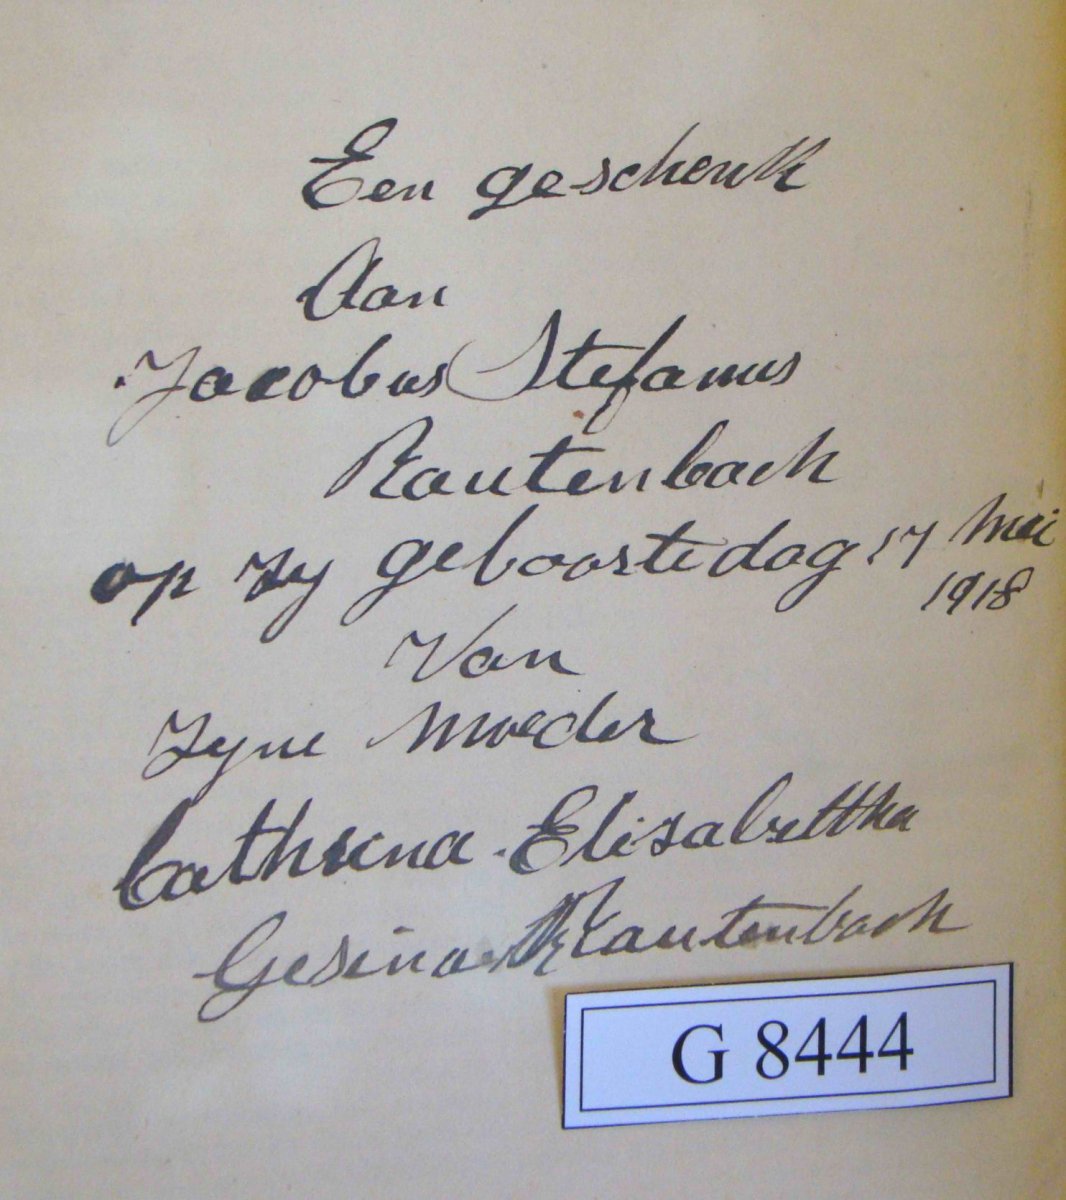 Een geschenk
Aan
Jacobus Stefanus
Rautenbach
op zy geboortedag 17 Mei
1918
Van
Zyne Moeder
Cathrina Elisabettha
Gesina Rautenbach
G 8444